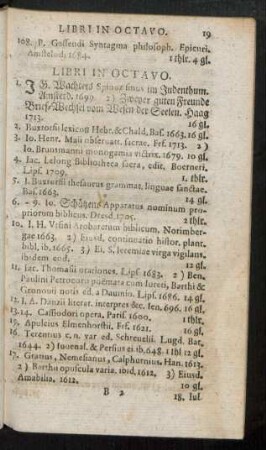 LIBRI IN OCTAVO. 19
168. P. Gassendi Syntagma philosoph. Epicuri.
Amstelod. 1684. 1 thlr. 4 gl.
LIBRI IN OCTAVO.
1. J. G. Wachters Spinozismus im Judenthum.
Amsterd. 1699. 2) Zweyer guten Freunde
Brief-Wechsel vom Wesen der Seelen. Haag
1713. 16 gl.
2. Buxtorfii lexicon Hebr. & Chald, Bas. 1663. 16 gl.
3. Io. Henr. Maii observatt. sacrae. Frf. 1713. 2)
Io. Brunsmanni monogamia victrix. 1679. 10 gl.
4. Iac. Lelong Bibliotheca sacra, edit. Boerneri.
Lips. 1709. 1 thlr.
5. I. Buxtorfii thesaurus grammat. linguae sanctae.
Bas. 1663. 14 gl.
6. - 9. Io. Apparatus nominum pro-
priorum biblicus. Dresd. 1705. 2 thlr.
10. I. H. Vrsini Arboretum biblicum. Norimber-
gae 1663. 2) Eiusd. continuatio histor. plant.
bibl. ib. 1665. 3) Ei. S. Ieremiae virga vigilans.
ibidem eod. 12 gl.
11. Iac. Thomasii orationes. Lips. 1683. 2) Ben.
Paulini Petrocorii poëmata cum Iureti, Barthi &
Gronouii notis ed. a Daumio. Lips. 1686. 14 gl.
12. I. A. Danzii literat. interpres &c. Ien. 696. 16 gl.
13-14. Cassiodori opera, Paris. 1600. 1 thlr.
15. Apuleius Elmenhorstii, Frf. 1621. 16 gl.
16. Terentius c. n. var. ed Schreuelii. Lugd. Bat.
1644. 2) Iuuenal. & Persius ei. ib. 648. 1 thl 12 gl.
17. Gratius, Nemesianus, Calphurnius. Han. 1613.
2) Barthii opuscula varia. ibid. 1612. 3) Eiusd.
Amabilia. 1612. 10 gl.
B 2 18. Iul